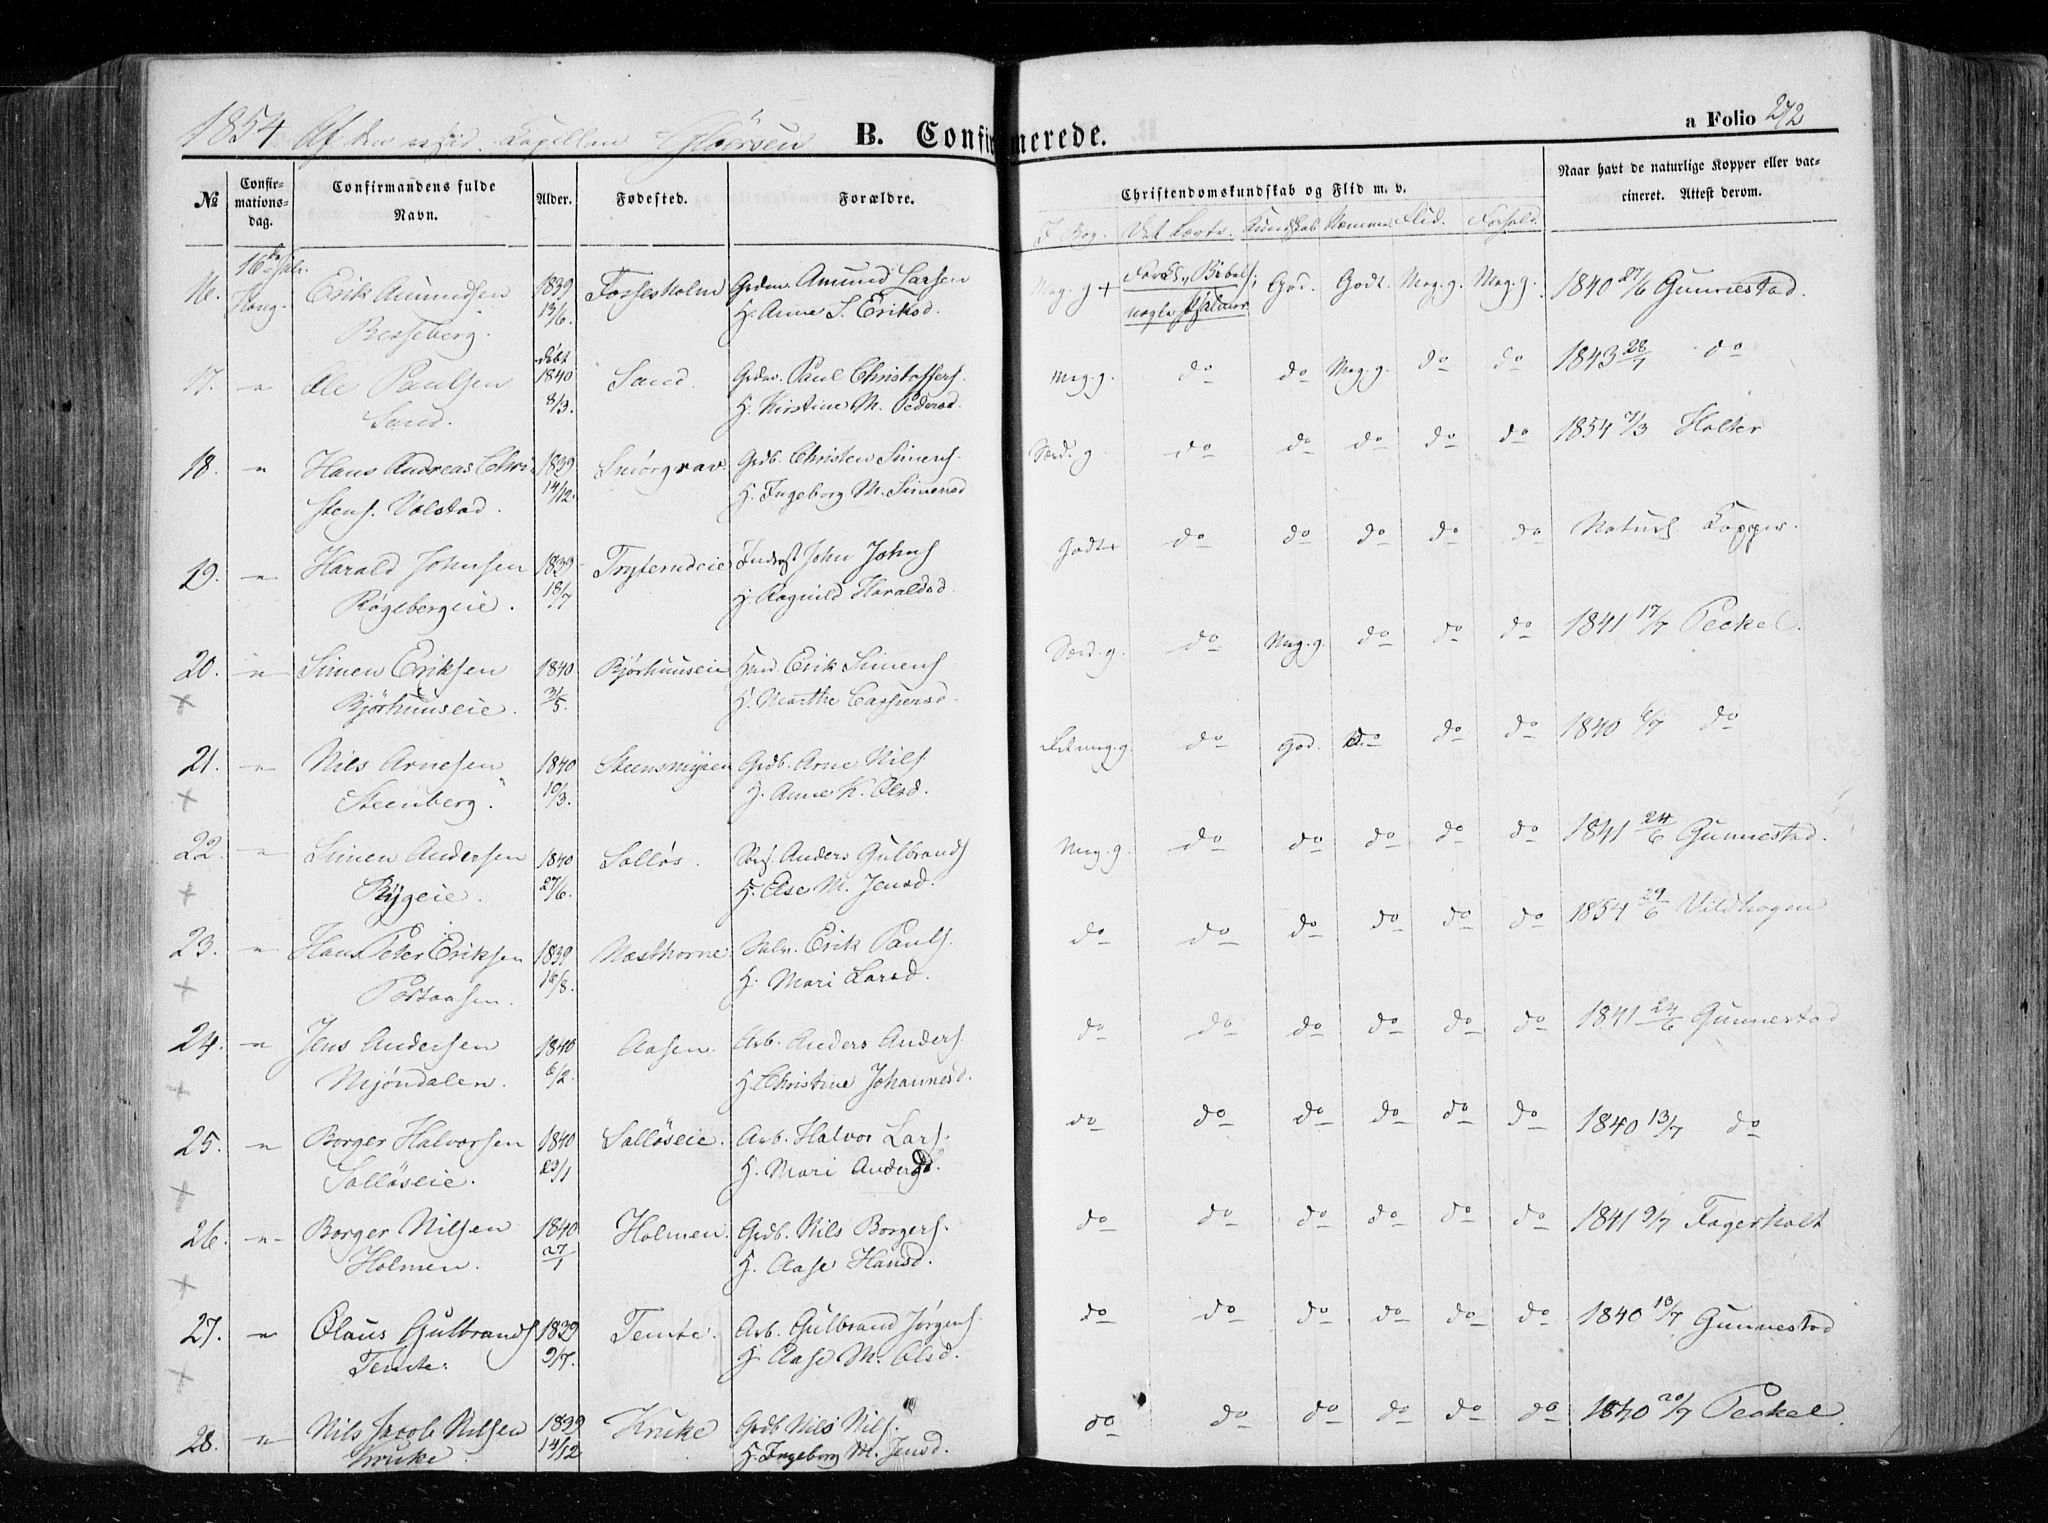 1854 Af den Capellan
B. Confirmerede.
a Folio 272
№
Confir-
mations-
dag.
Confirmandens fulde
Navn.
Alder.
Fødested.
Forældre.
Christendomskundskab og Flid m. v.
Naar havt de naturlige Kopper eller vac-
cineret. Attest derom.
I Bog. Det Lærte. Kundskab Nemme Flid. Forhold.
16. Erik Amundsen 1839 Fossesholm Grdm. Amund Larsen Meg. g + Forkl., Bibelh; God. Godt. Meg. g. Meg. g. 1840 27/6 Gunnestad.
Besseberg. 13/6. H. Anne S. Eriksd. nogle Psalmer
døbt
17. " Ole Paulsen 1840 Sand. Grdm. Paul Christoffers. Meg. g. do do Meg. g. do do 1843 28/7 do
Sand. 8/3. H. Kirstine M. Pedersd.
18. " Hans Andreas Chri 1839 Smörgrav Grdb. Christen Simens. Særd. g do do do do do 1854 7/3 Holter
stens. Valstad. 14/12. H. Ingeborg M. Simensd
19. " Harald Johnsen 1839 Tryterudeie Inderst John Johns Godt + do do do do do Naturl. Kopper.
Røgebergeie. 18/7 H. Ragnild Haraldsd
20. " Simen Eriksen 1840 Bjørhuuseie Erik Simens Særd. g. do Meg. g. do do do 1841 17/7 Peckel.
Bjørhuuseie. 31/5. H. Marthe Caspersd.
21. " Nils Arnesen 1840 Steensmyien Grdb. Arne Nils meg. g. do God. do do do 1840 6/7 do
Steenberg. 10/3. H. Anne K. Olsd.
22. " Simen Andersen 1840 Solløs. Anders Gulbrands Meg. g. do do do do do 1841 24/6 Gunnestad.
Rygeie. 27/6. H. Else M. Jensd.
23. " Hans Peter Eriksen 1839 Næsthorne Selv. Erik Pauls. do do do do do do 1854 29/6 Vildhagen
Portaasen. 18/8. H. Mari Larsd.
24. " Jens Andersen 1840 Aasen. Arb. Anders Anders. do do do do do do 1841 24/6 Gunnestad
Mjöndalen. 6/2. H. Christine Johannesd.
25. " Borger Halvorsen 1840 Solløseie. Arb. Halvor Lars. do do do do do do 1840 13/7 do
Solløseie. 23/1 H. Mari Andersd.
26. " Borger Nilsen 1840 Holmen. Grdb. Nils Borgers. do do do do do do 1841 9/7 Fagerholt
Holmen. 27/1 H. Aase Hansd.
27. " Olaus Gulbrands 1839 Temte. Arb. Gulbrand Jørgens. do do do do do do 1840 13/7 Gunnestad
Temte. 9/7. H. Aase M. Olsd.
28. " Nils Jacob Nilsen 1839 Kruke Grdb Nils Nils. do do do do do do 1840 20/7 Peckel.
Kruke. 14/12 H. Ingeborg M. Jensd.